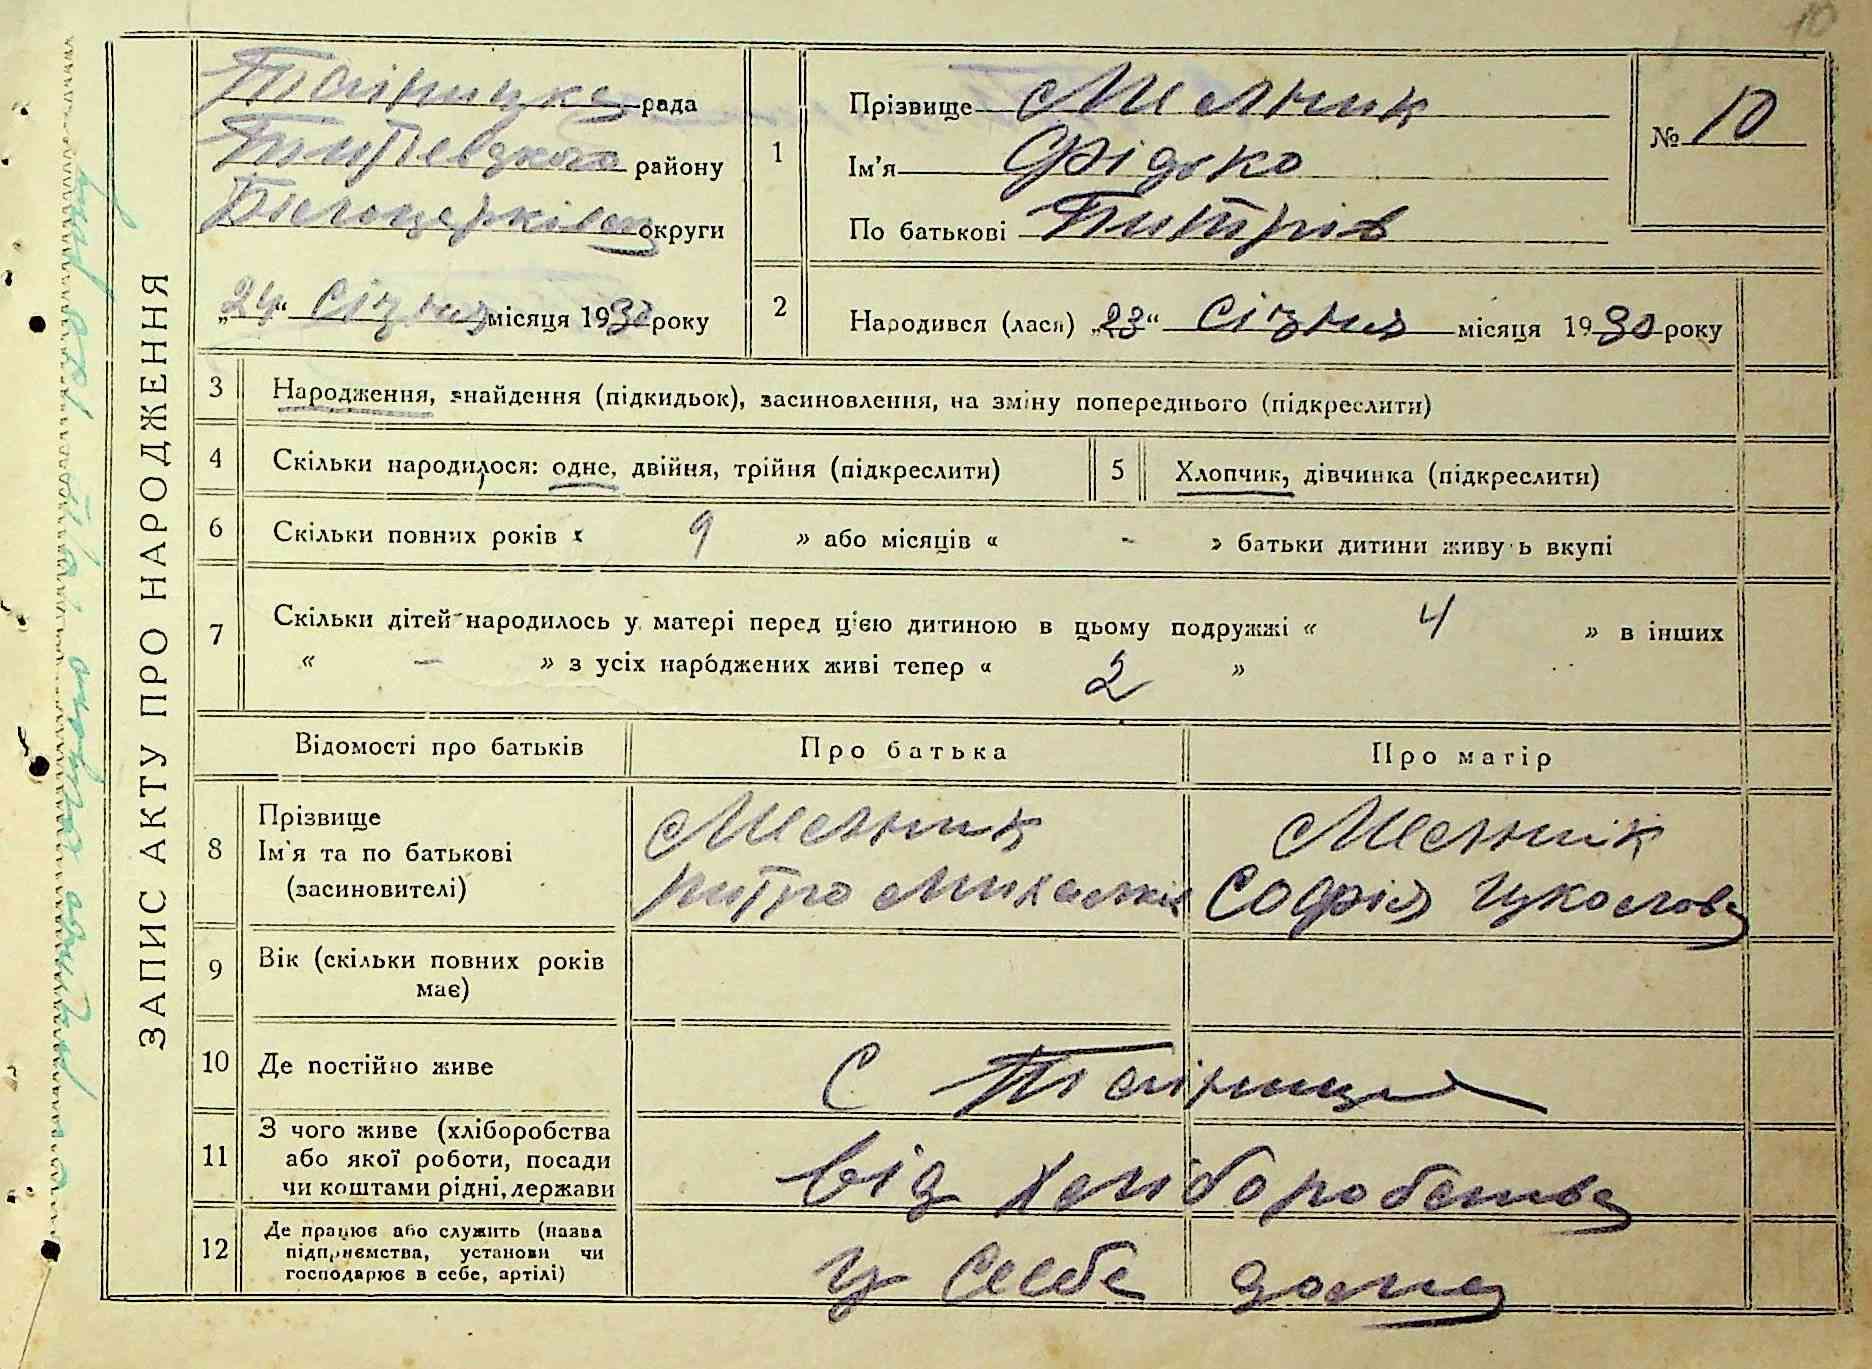 10
ЗАПИС АКТУ ПРО НАРОДЖЕННЯ
рада
району
Білоцерківськ округи
„24“ Січня місяця 1930 року
1
Прізвище Мельник
Ім'я Фідько
По батькові Питрів
№ 10
2
Народився (лася) „23“ Січня місяця 1930 року
3
Народження, знайдення (підкидьок), засиновлення, на зміну попереднього (підкреслити)
4
Скільки народилося: одне, двійня, трійня (підкреслити)
5
Хлопчик, дівчинка (підкреслити)
6
Скільки повних років « 9 » або місяців « - » батьки дитини живуть вкупі
7
Скільки дітей народилось у матері перед цією дитиною в цьому подружжі « 4 » в інших
« - » з усіх народжених живі тепер « 2 »
Відомості про батьків
Про батька
Про матір
8
Прізвище
Ім'я та по батькові
(засиновителі)
Мельник
Питро Михальків
Мельник
Софія
9
Вік (скільки повних років
має)
10
Де постійно живе
с
11
З чого живе (хліборобства
або якої роботи, посади
чи коштами рідні, держави
від хліборобства
12
Де працює або служить (назва
підприємства, установи чи
господарює в себе, артілі)
у себе дома